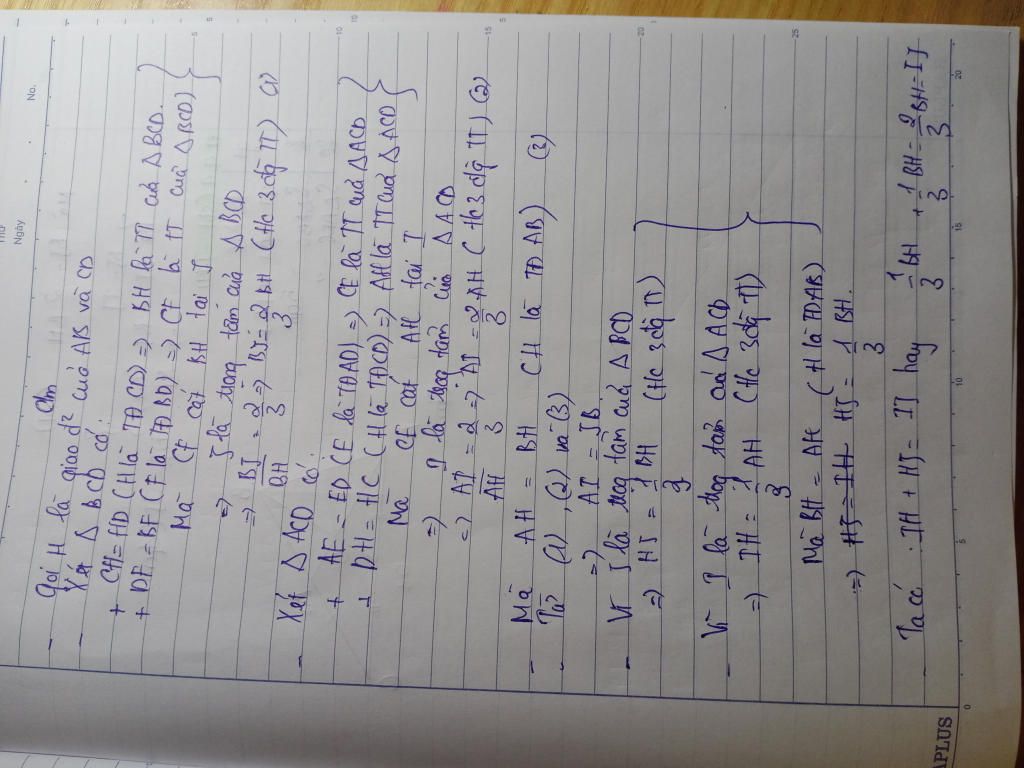 Thứ
Ngày
No.
Cm
- Gọi H là giao đ² của AB và CD
- Xét Δ BCD có:
+ CH = HD (H là TĐ CD) => BH là TT của Δ BCD.
+ DF = BF (F là TĐ BD) => CF là TT của Δ BCD)
Mà CF cắt BH tại J
=> J là trọng tâm của Δ BCD
=> BJ/BH = 2/3 => BJ = 2/3 BH (Hc 3 đg TT) (1)
- Xét Δ ACD có:
+ AE = ED (E là TĐ AD) => CE là TT của Δ ACD
+ DH = HC (H là TĐ CD) => AH là TT của Δ ACD
Mà CE cắt AH tại I
=> I là trọng tâm của Δ ACD
=> AI/AH = 2/3 => AI = 2/3 AH (Hc 3 đg TT) (2)
- Mà AH = BH (H là TĐ AB) (3)
- Từ (1), (2) và (3)
=> AI = JB.
- Vì J là trọg tâm của Δ BCD
=> HJ = 1/3 BH (Hc 3 đg TT)
- Vì I là trọg tâm của Δ ACD
=> IH = 1/3 AH (Hc 3 đg TT)
Mà BH = AH (H là TĐ AB)
=> HJ = IH HJ = 1/3 BH.
- Ta có: IH + HJ = IJ hay 1/3 BH + 1/3 BH = 2/3 BH = IJ
APLUS
0 5 10 15 20
5 10 15 20 25